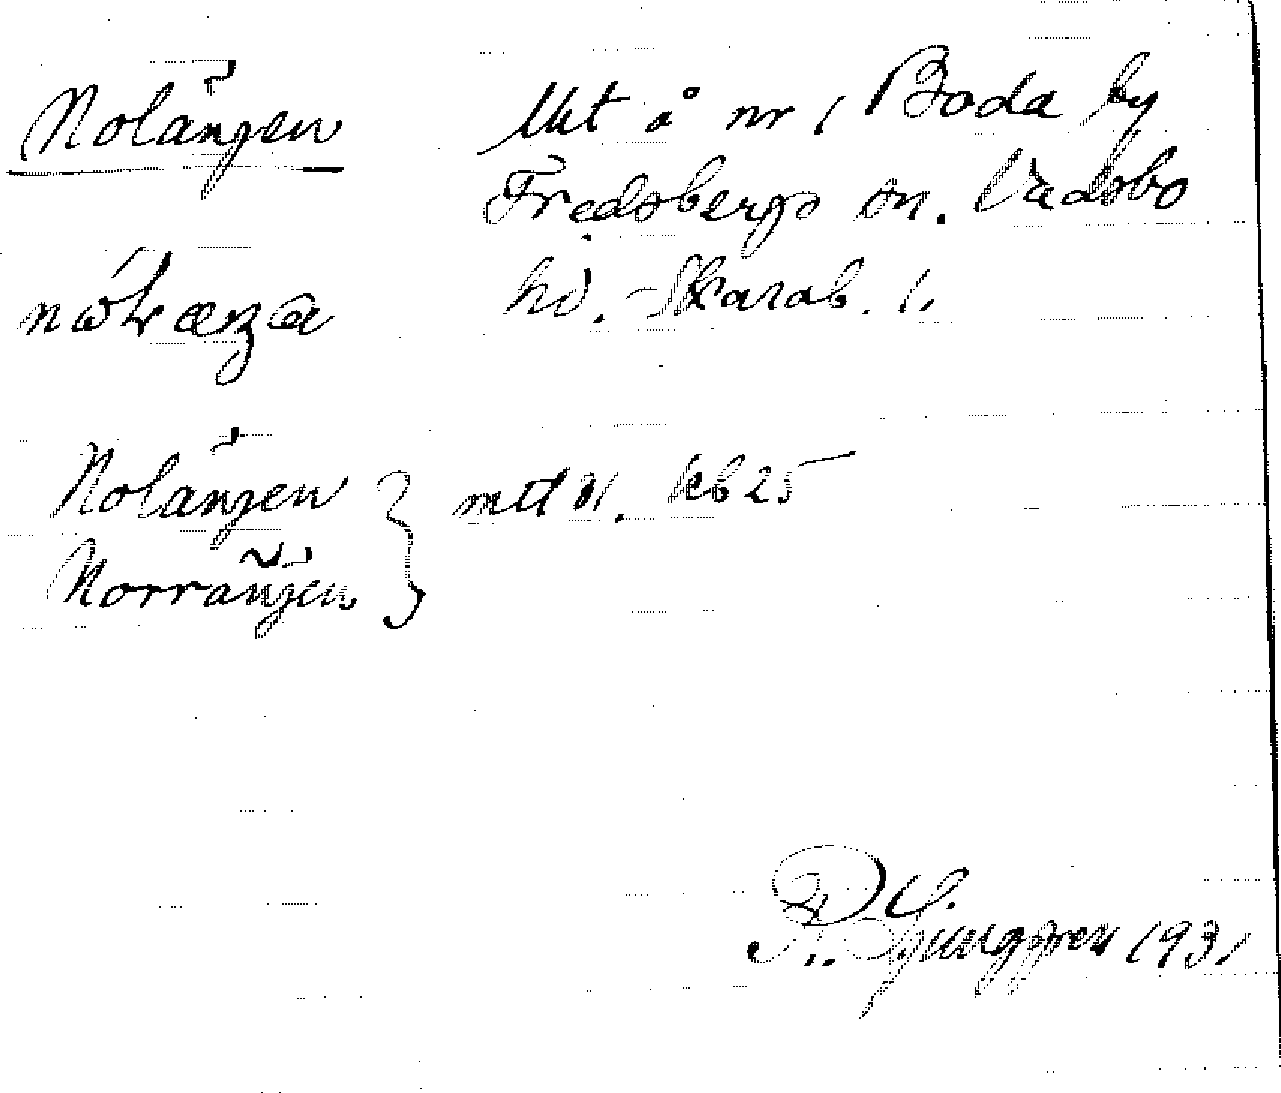 Nolängen Mkt å nr 1 Boda by
Fredsbergs sn. Vadsbo
hd. Skarab. l.
Nolängen
Norrängen } mtl 31. kb 25
R. Ljunggren 1931